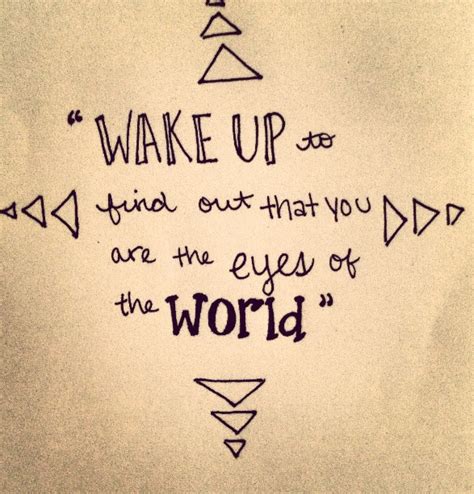 “WAKE UP to
find out that you
are the eyes of
the World”